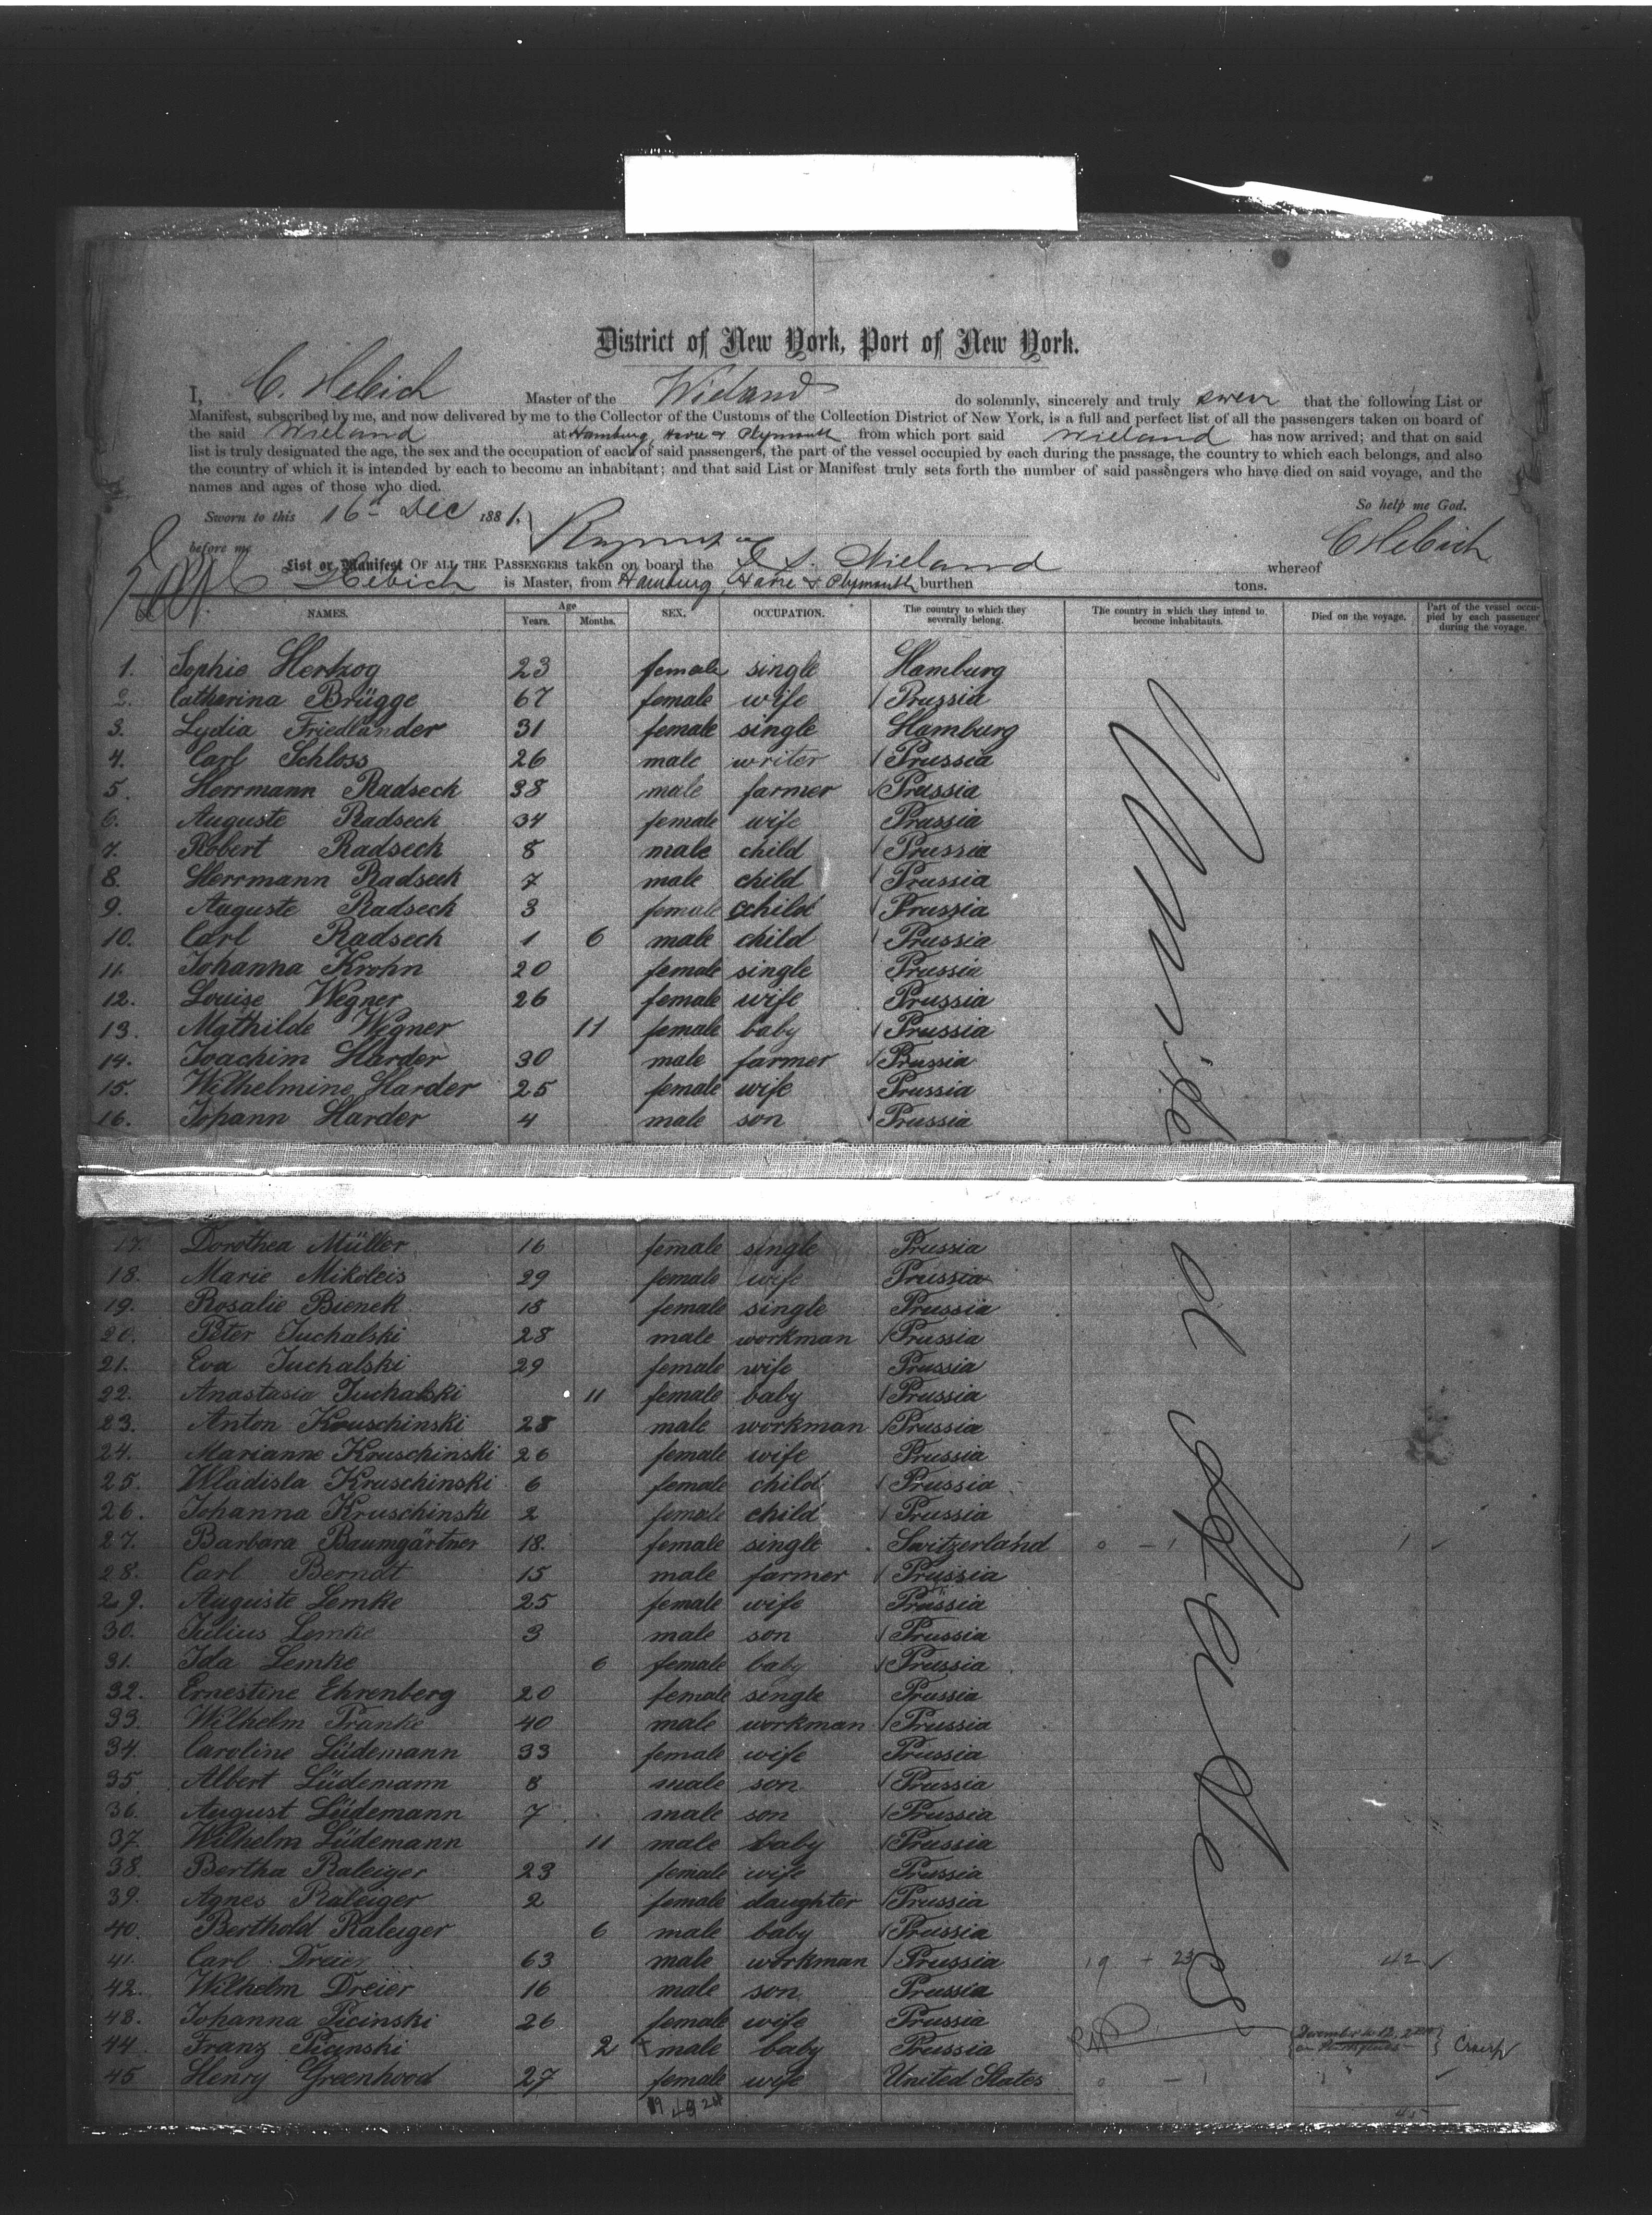 District of New York, Port of New York.
I, C. Hebich Master of the Wieland do solemnly, sincerely and truly swear that the following List or
Manifest, subscribed by me, and now delivered by me to the Collector of the Customs of the Collection District of New York, is a full and perfect list of all the passengers taken on board of
the said Wieland at Hamburg, Havre & Plymouth from which port said Wieland has now arrived; and that on said
list is truly designated the age, the sex and the occupation of each of said passengers, the part of the vessel occupied by each during the passage, the country to which each belongs, and also
the country of which it is intended by each to become an inhabitant; and that said List or Manifest truly sets forth the number of said passengers who have died on said voyage, and the
names and ages of those who died.
So help me God.
Sworn to this 16 Dec 1881,
C Hebich
before me
List or Manifest OF ALL THE PASSENGERS taken on board the S. S. Wieland whereof
C Hebich is Master, from Hamburg, Havre & Plymouth burthen tons.
NAMES. Age Years. Months. SEX. OCCUPATION. The country to which they severally belong. The country in which they intend to become inhabitants. Died on the voyage. Part of the vessel occupied by each passenger during the voyage.
1. Sophie Hertzog 23 female single Hamburg
2. Catherina Brügge 67 female wife Prussia
3. Lydia Friedländer 31 female single Hamburg
4. Carl Schloss 26 male writer Prussia
5. Herrmann Radseck 38 male farmer Prussia
6. Auguste Radseck 34 female wife Prussia
7. Robert Radseck 8 male child Prussia
8. Herrmann Radseck 7 male child Prussia
9. Auguste Radseck 3 female child Prussia
10. Carl Radseck 1 6 male child Prussia
11. Johanna Krohn 20 female single Prussia
12. Louise Wegner 26 female wife Prussia
13. Mathilde Wegner 11 female baby Prussia
14. Joachim Harder 30 male farmer Prussia
15. Wilhelmine Harder 25 female wife Prussia
16. Johann Harder 4 male son Prussia
17. Dorothea Müller 16 female single Prussia
18. Marie Mikoleis 29 female wife Prussia
19. Rosalie Bienek 18 female single Prussia
20. Peter Juchalski 28 male workman Prussia
21. Eva Juchalski 29 female wife Prussia
22. Anastasia Juchalski 11 female baby Prussia
23. Anton Kruschinski 28 male workman Prussia
24. Marianne Kruschinski 26 female wife Prussia
25. Wladisla Kruschinski 6 female child Prussia
26. Johanna Kruschinski 2 female child Prussia
27. Barbara Baumgärtner 18. female single Switzerland 0 - 1 1
28. Carl Berndt 15 male farmer Prussia
29. Auguste Lemke 25 female wife Prussia
30. Julius Lemke 3 male son Prussia
31. Ida Lemke 6 female baby Prussia
32. Ernestine Ehrenberg 20 female single Prussia
33. Wilhelm Franke 40 male workman Prussia
34. Caroline Lüdemann 33 female wife Prussia
35. Albert Lüdemann 8 male son Prussia
36. August Lüdemann 7 male son Prussia
37. Wilhelm Lüdemann 11 male baby Prussia
38. Bertha Raleiger 23 female wife Prussia
39. Agnes Raleiger 2 female daughter Prussia
40. Berthold Raleiger 6 male baby Prussia
41. Carl Dreier 63 male workman Prussia 19 + 23 42
42. Wilhelm Dreier 16 male son Prussia
43. Johanna Picinski 26 female wife Prussia
44. Franz Picinski 2 male baby Prussia
45 Henry Greenhood 27 female wife United States 0 - 1